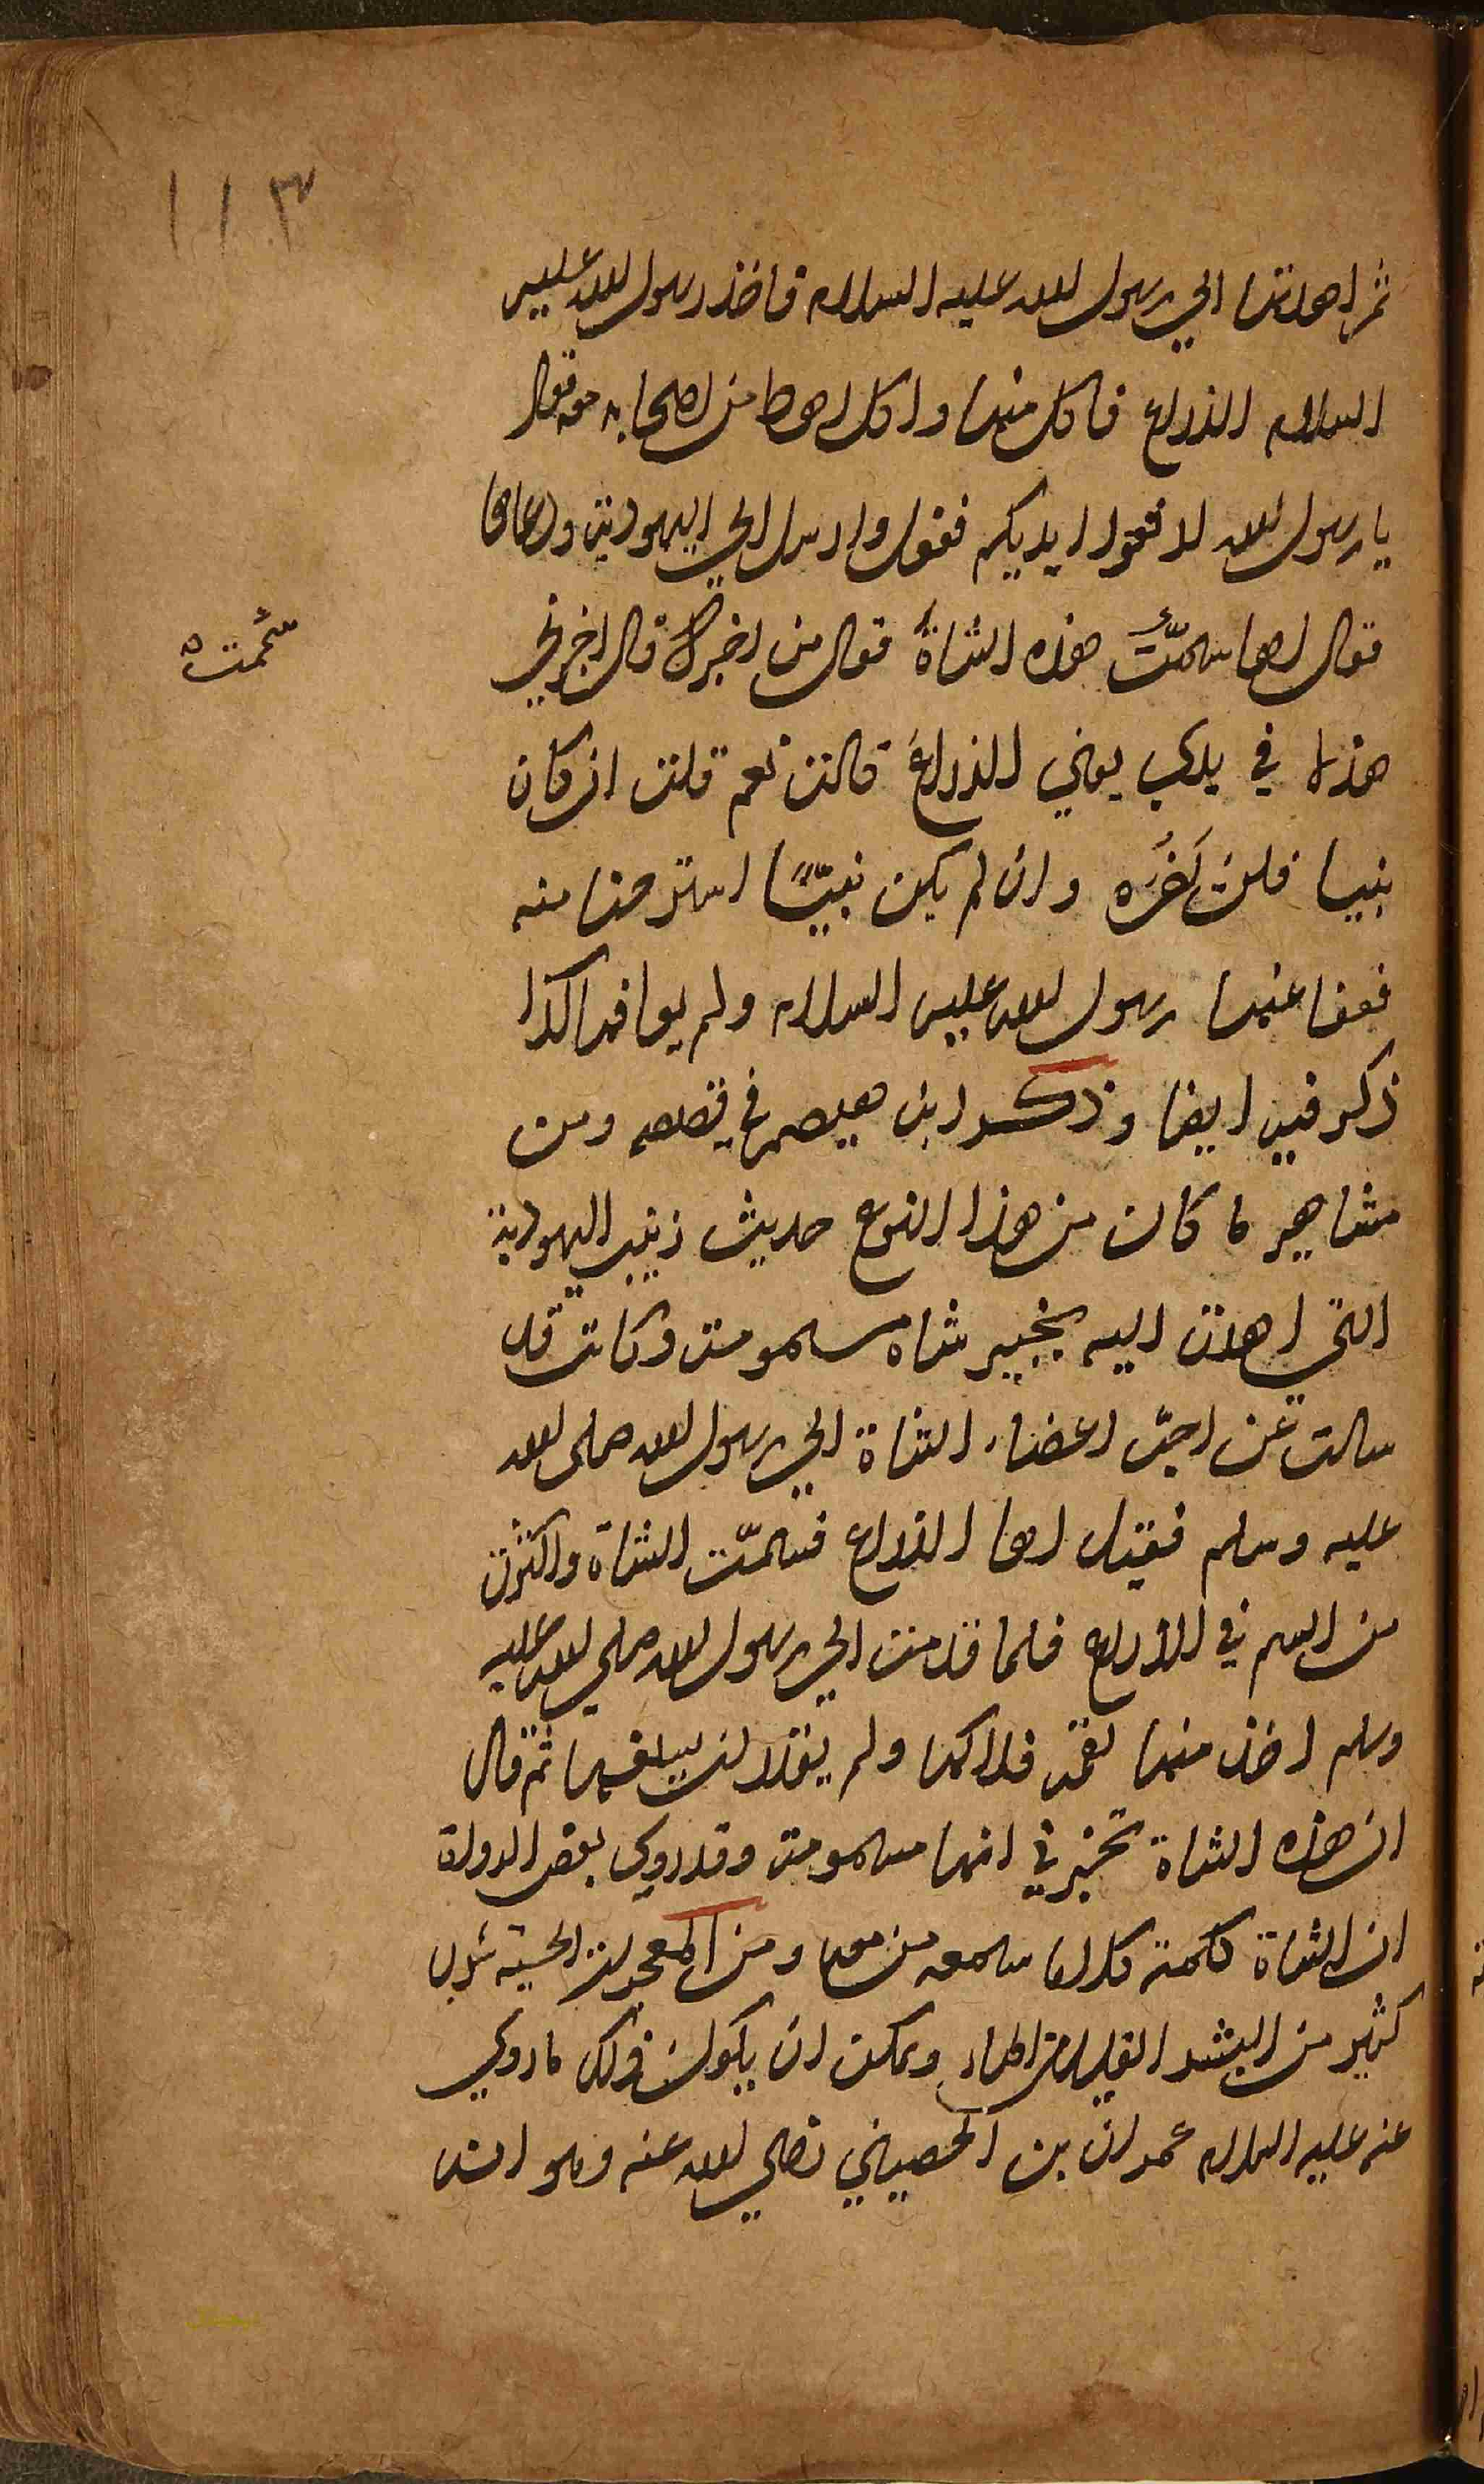 ١١٣
ثم اهدتها الي رسول الله عليه السلام فاخذ رسول الله عليه
السلام الذراع فاكل منها واكل رهط من اصحابه معه فقال
يا رسول الله لا ارفعوا ايديكم فقال وارسل الي اليهودية ودعاها
فقال لها سممت هذه الشاة فقال من اخبرك قال اخبرني
سممت
هذا في يدي يعني الذراع قالت نعم قلت ان كان
نبيا فلن يضره وان لم يكن نبيًا استرحنا منه
فعفا عنها رسول الله عليه السلام ولم يعاقبها كذا
ذكر فيه ايضا وذكر ابن هيصم في قصصه ومن
مشاهير ما كان من هذا النوع حديث زينب اليهودية
التي اهدت اليه بخيبر شاه مسمومة وكانت قد
سالت عن احبّ اعضاء الشاة الي رسول الله صلى الله
عليه وسلم فقيل لها الذراع فسمّت الشاة واكثرت
من السم في الذراع فلما قدمت الي رسول الله صلي الله عليه
وسلم اخذ منها لقمة فلاكها ولم يقدر ان يبلغها ثم قال
ان هذه الشاة تخبرني انها مسمومة وقد روي بعض الرواة
ان الشاة كلمته كلاما سمعه من معه ومن المعجزات الحسية شرب
كثير من البشر القليل من الماء ويمكن ان يكون ذلك ما روي
عنه عليه السلام عمران بن الحصيني رضي الله عنه وهو انه